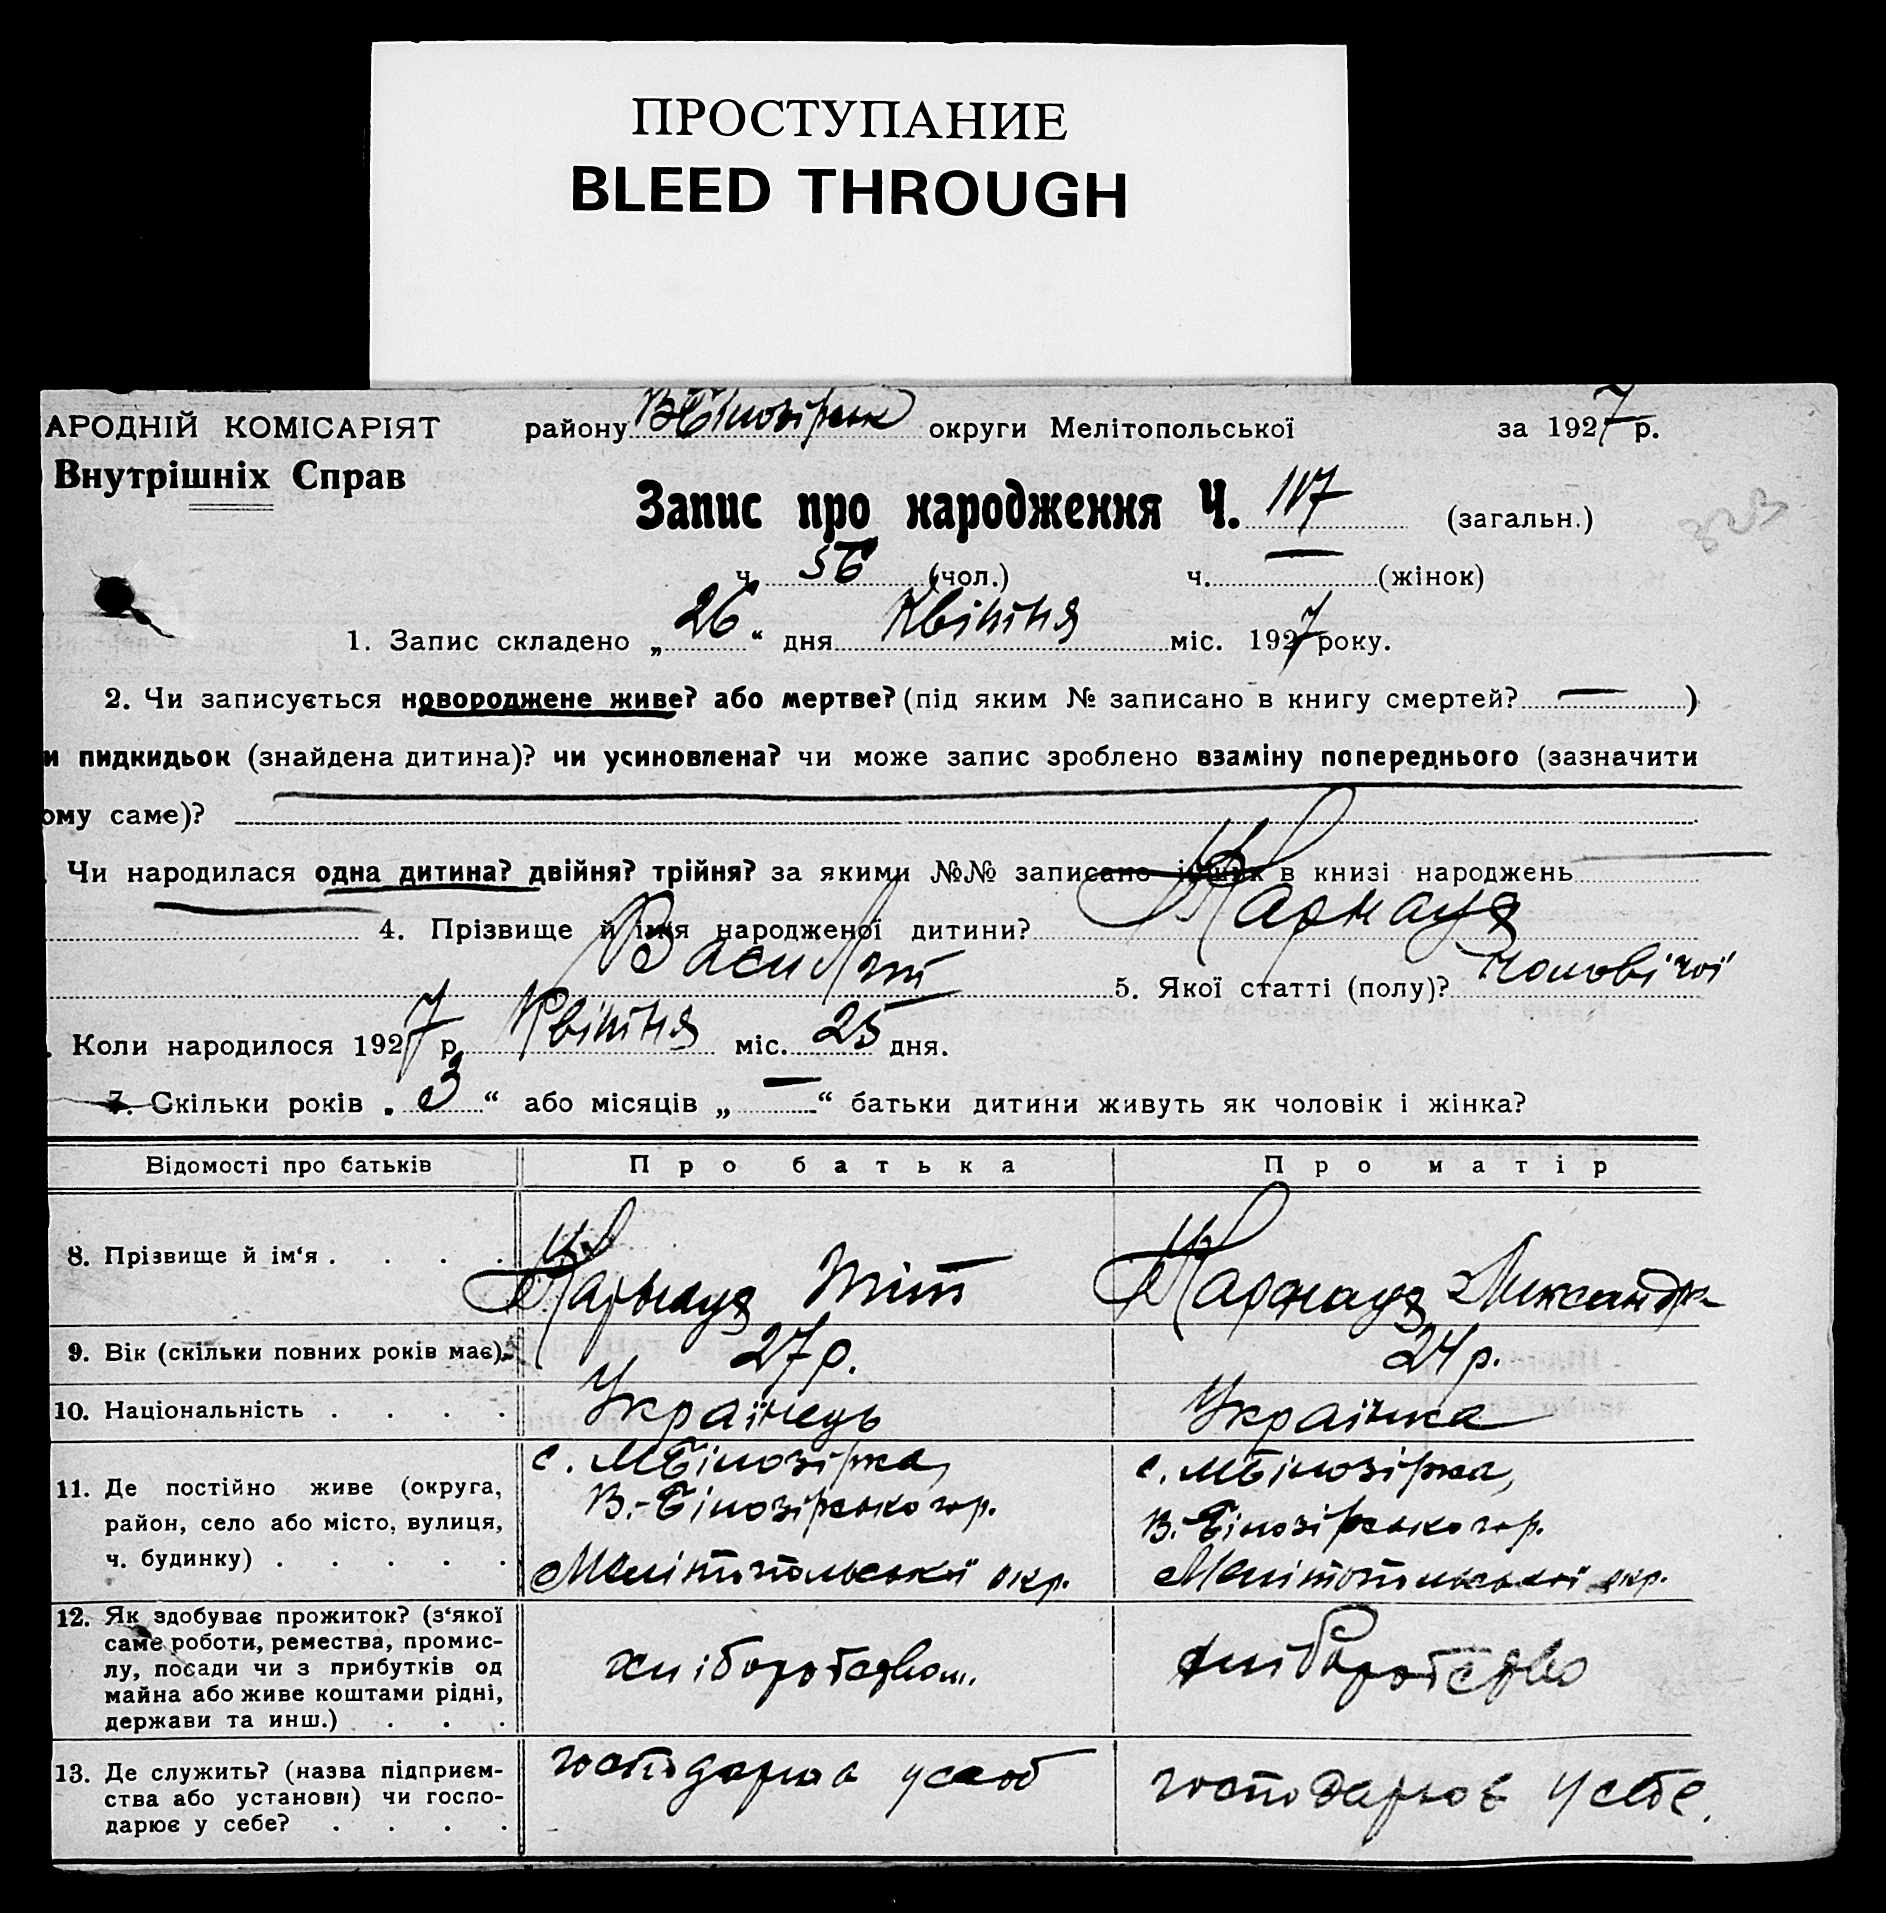 ПРОСТУПАНИЕ
BLEED THROUGH
АРОДНІЙ КОМІСАРІЯТ району В-Білозірськ округи Мелітопольської за 1927 р.
Внутрішніх Справ
Запис про народження Ч. 117 (загальн.)
323
ч. 56 (чол.) ч. — (жінок)
1. Запис складено „26“ дня Квітня міс. 1927 року.
2. Чи записується новороджене живе? або мертве? (під яким № записано в книгу смертей? — )
и пидкидьок (знайдена дитина)? чи усиновлена? чи може запис зроблено взаміну попереднього (зазначити
ому саме)?
. Чи народилася одна дитина? двійня? трійня? за якими №№ записано інших в книзі народжень
4. Прізвище й ім'я народженої дитини? Карнауз
Василь 5. Якої статті (полу)? чоловічої
. Коли народилося 1927 р. Квітня міс. 25 дня.
7. Скільки років „3“ або місяців „—“ батьки дитини живуть як чоловік і жінка?
Відомості про батьків Про батька Про матір
8. Прізвище й ім‘я . . . . Карнауз Тіт Карнауз Александра
9. Вік (скільки повних років має). 27 р. 24 р.
10. Національність . . . . Українець Українка
11. Де постійно живе (округа, район, село або місто, вулиця, ч. будинку) . . . . .
с. МБілозірка,
В.-Білозірського р.
Мелітопольської окр.
с. МБілозірка,
В.-Білозірського р.
Мелітопольської окр.
12. Як здобуває прожиток? (з‘якої
саме роботи, ремества, промис-
лу, посади чи з прибутків од
майна або живе коштами рідні,
держави та инш.) . . .
хліборобством.
хліборобство
13. Де служить? (назва підприєм-
ства або установи) чи госпо-
дарює у себе? . . . .
господарює у себе.